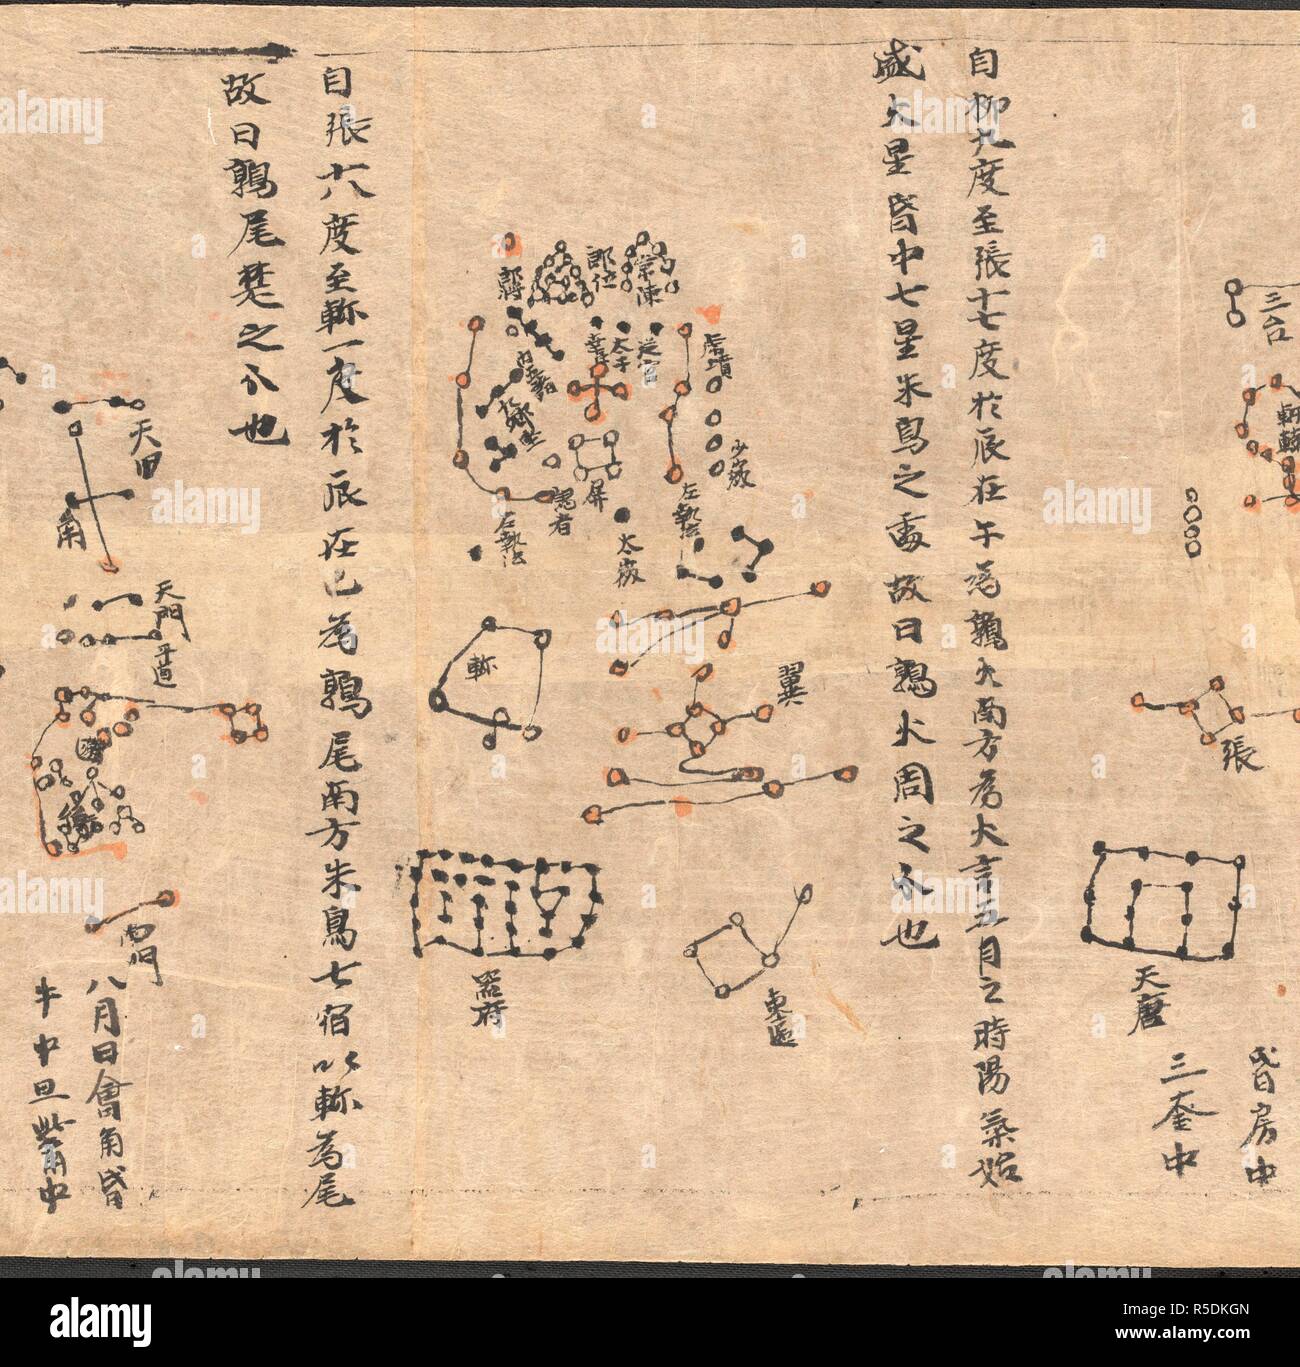 三台
軒轅
張
天廟
昏房中
三奎中
自柳九度至張十七度於辰在午為鶉火南方為火言五月之時陽氣始
盛火星昏中七星朱鳥之處故曰鶉火周之分也
常陳
郎位
郎將
虎賁
從官
太子
幸臣
內五諸侯
九卿
屏
少微
左執法
謁者
右執法
太微
翼
軫
東甌
器府
自張十八度至軫一度於辰在巳為鶉尾南方朱鳥七宿以軫為尾
故曰鶉尾楚之分也
天田
角
天門
平道
南門
八月日會角昏
牛中旦觜中
alamy
a
alamy
R5DKGN
www.alamy.com